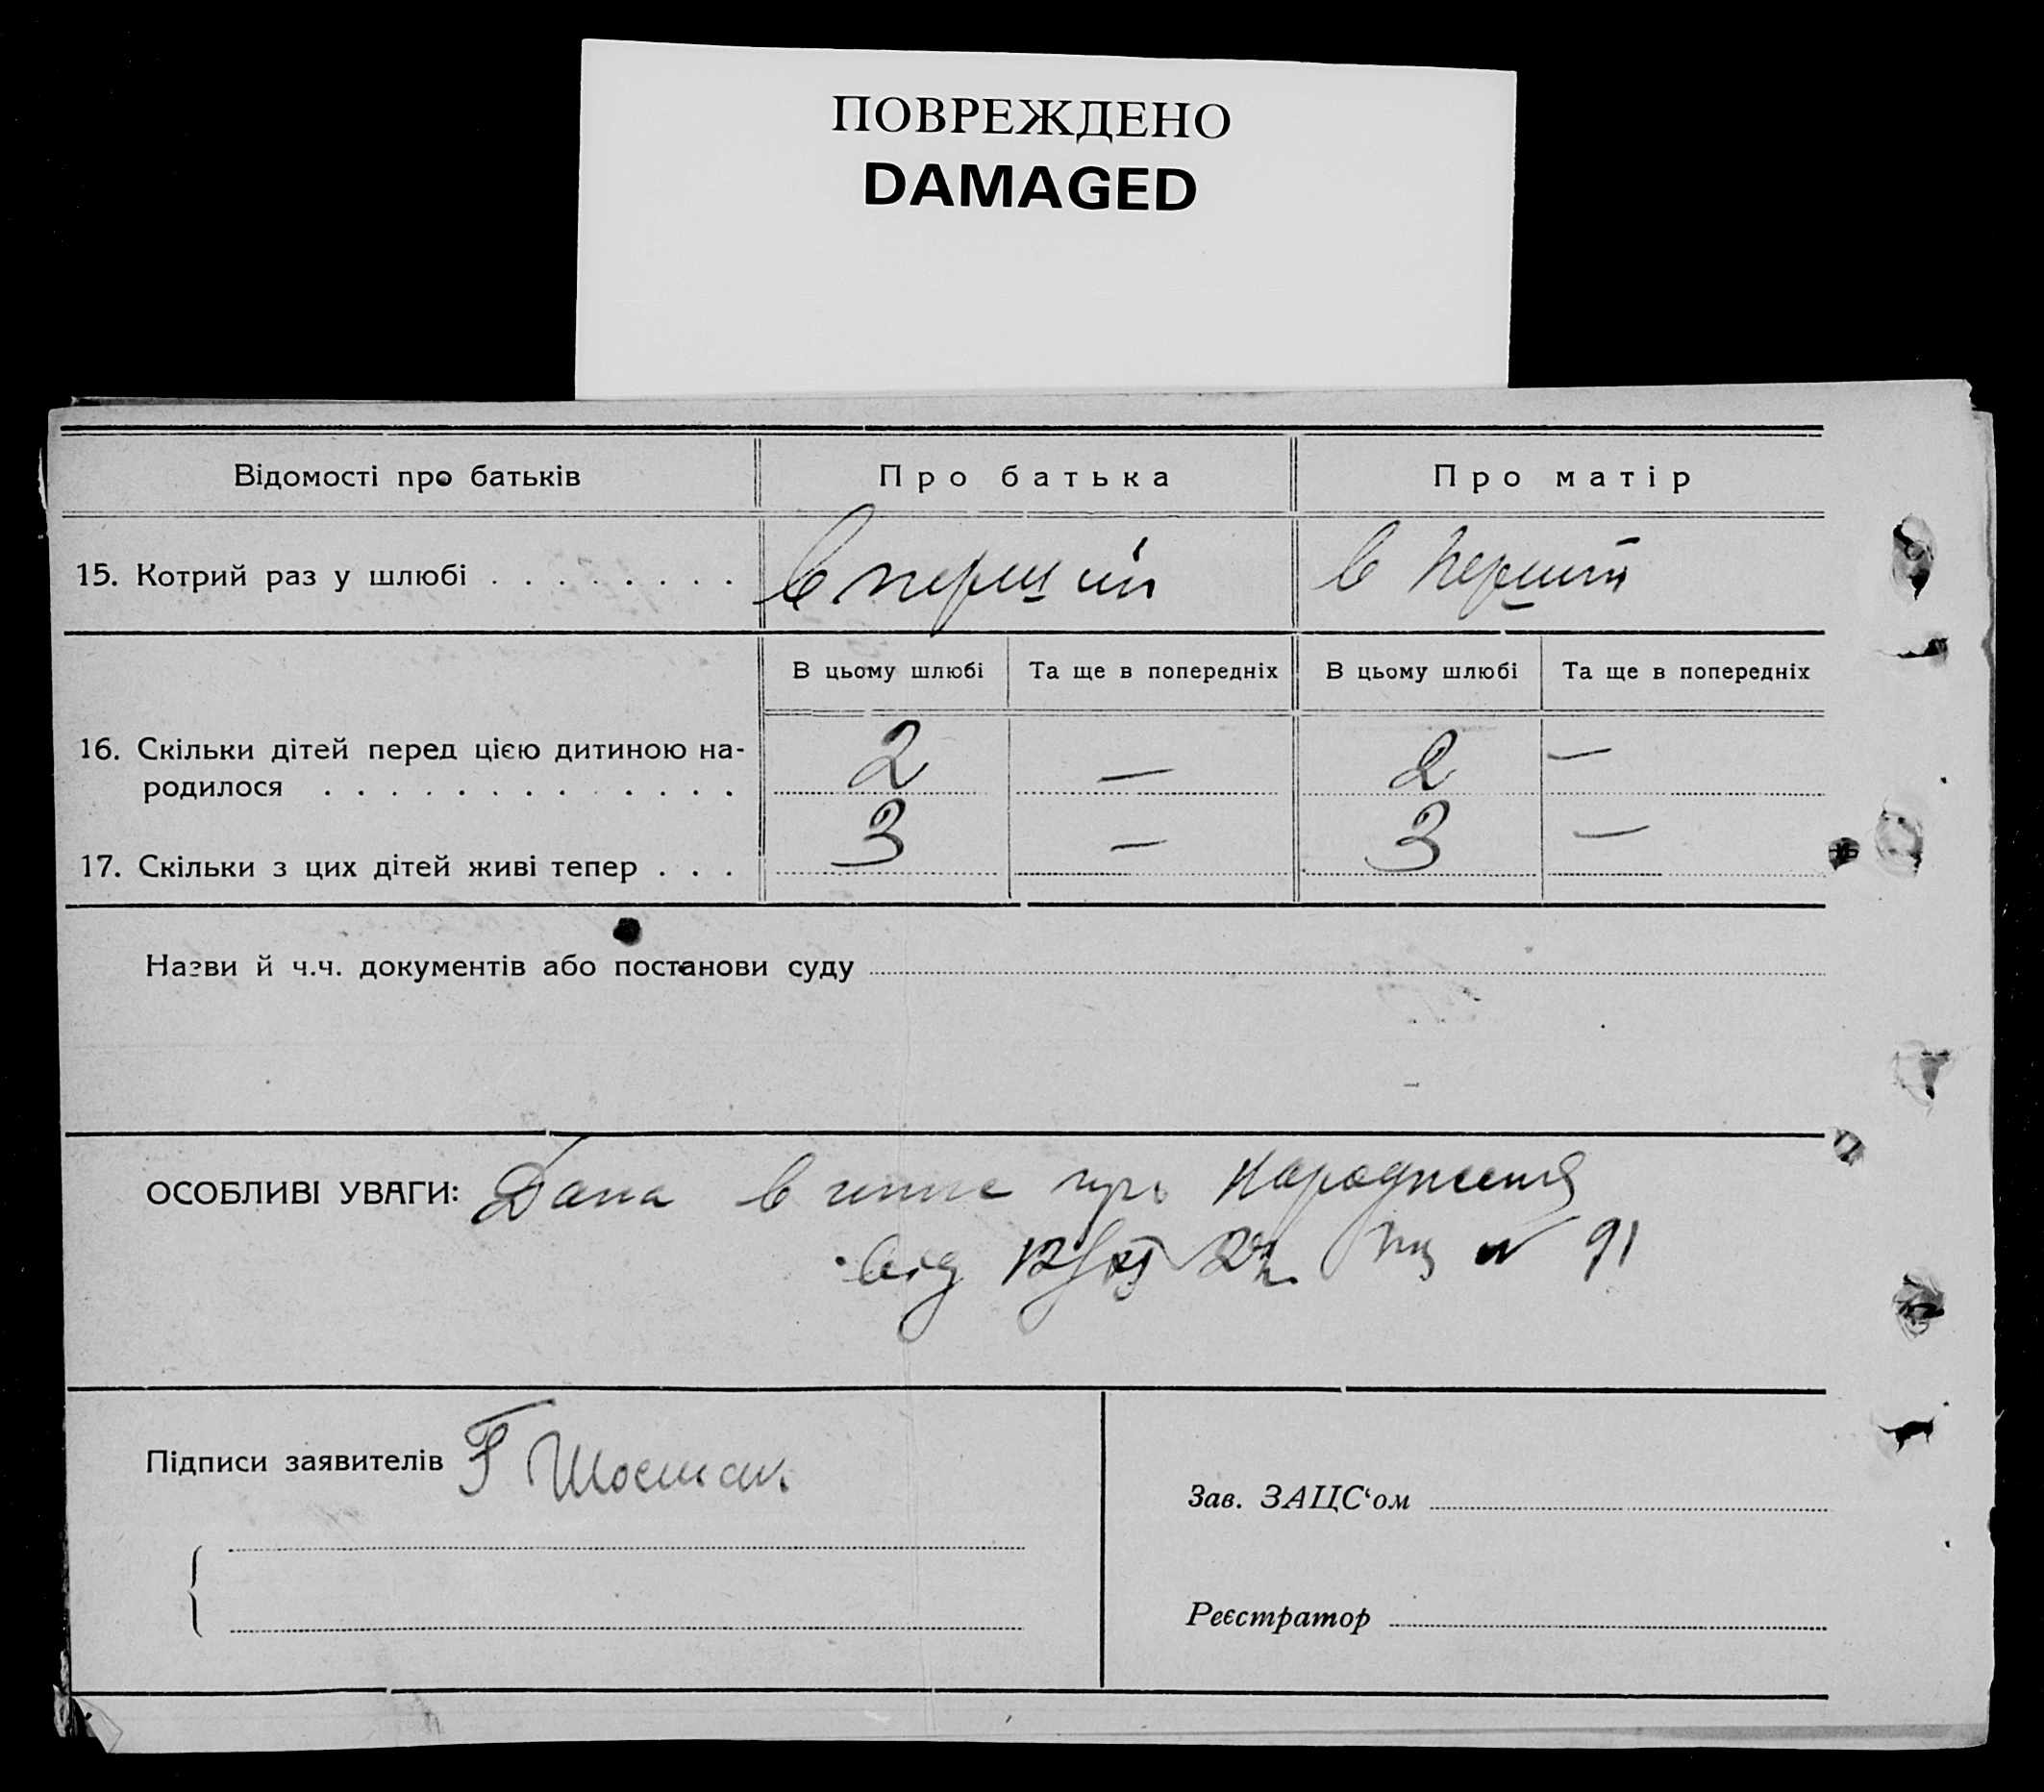 ПОВРЕЖДЕНО
DAMAGED
Відомості про батьків
Про батька
Про матір
15. Котрий раз у шлюбі . . . . . . . .
в перший
в перший
В цьому шлюбі
Та ще в попередніх
В цьому шлюбі
Та ще в попередніх
16. Скільки дітей перед цією дитиною на-
родилося . . . . . . . . . . . . .
2
—
2
—
17. Скільки з цих дітей живі тепер . . .
3
—
3
—
Назви й ч.ч. документів або постанови суду
ОСОБЛИВІ УВАГИ: Дана про народження
від 91
Підписи заявителів
Зав. ЗАЦС‘ом
Реєстратор